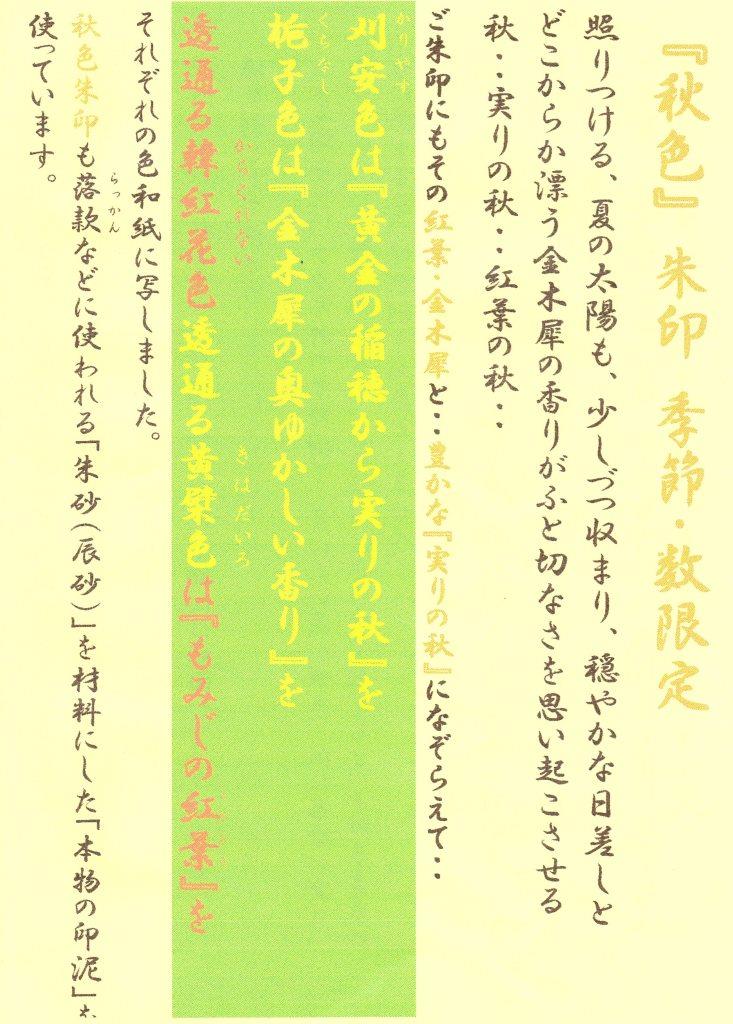 『秋色』 朱印 季節・数限定
照りつける、夏の太陽も、少しづつ収まり、穏やかな日差しと
どこからか漂う金木犀の香りがふと切なさを思い起こさせる
秋・・実りの秋・・紅葉の秋・・
ご朱印にもその紅葉・金木犀と・・豊かな『実りの秋』になぞらえて・・
かりやす
刈安色は『黄金の稲穂から実りの秋』を
くちなし
梔子色は『金木犀の奥ゆかしい香り』を
からくれない きはだいろ
透通る韓紅花色透通る黄檗色は『もみじの紅葉』を
それぞれの色和紙に写しました。
らっかん
秋色朱印も落款などに使われる「朱砂(辰砂)」を材料にした「本物の印泥」を
使っています。